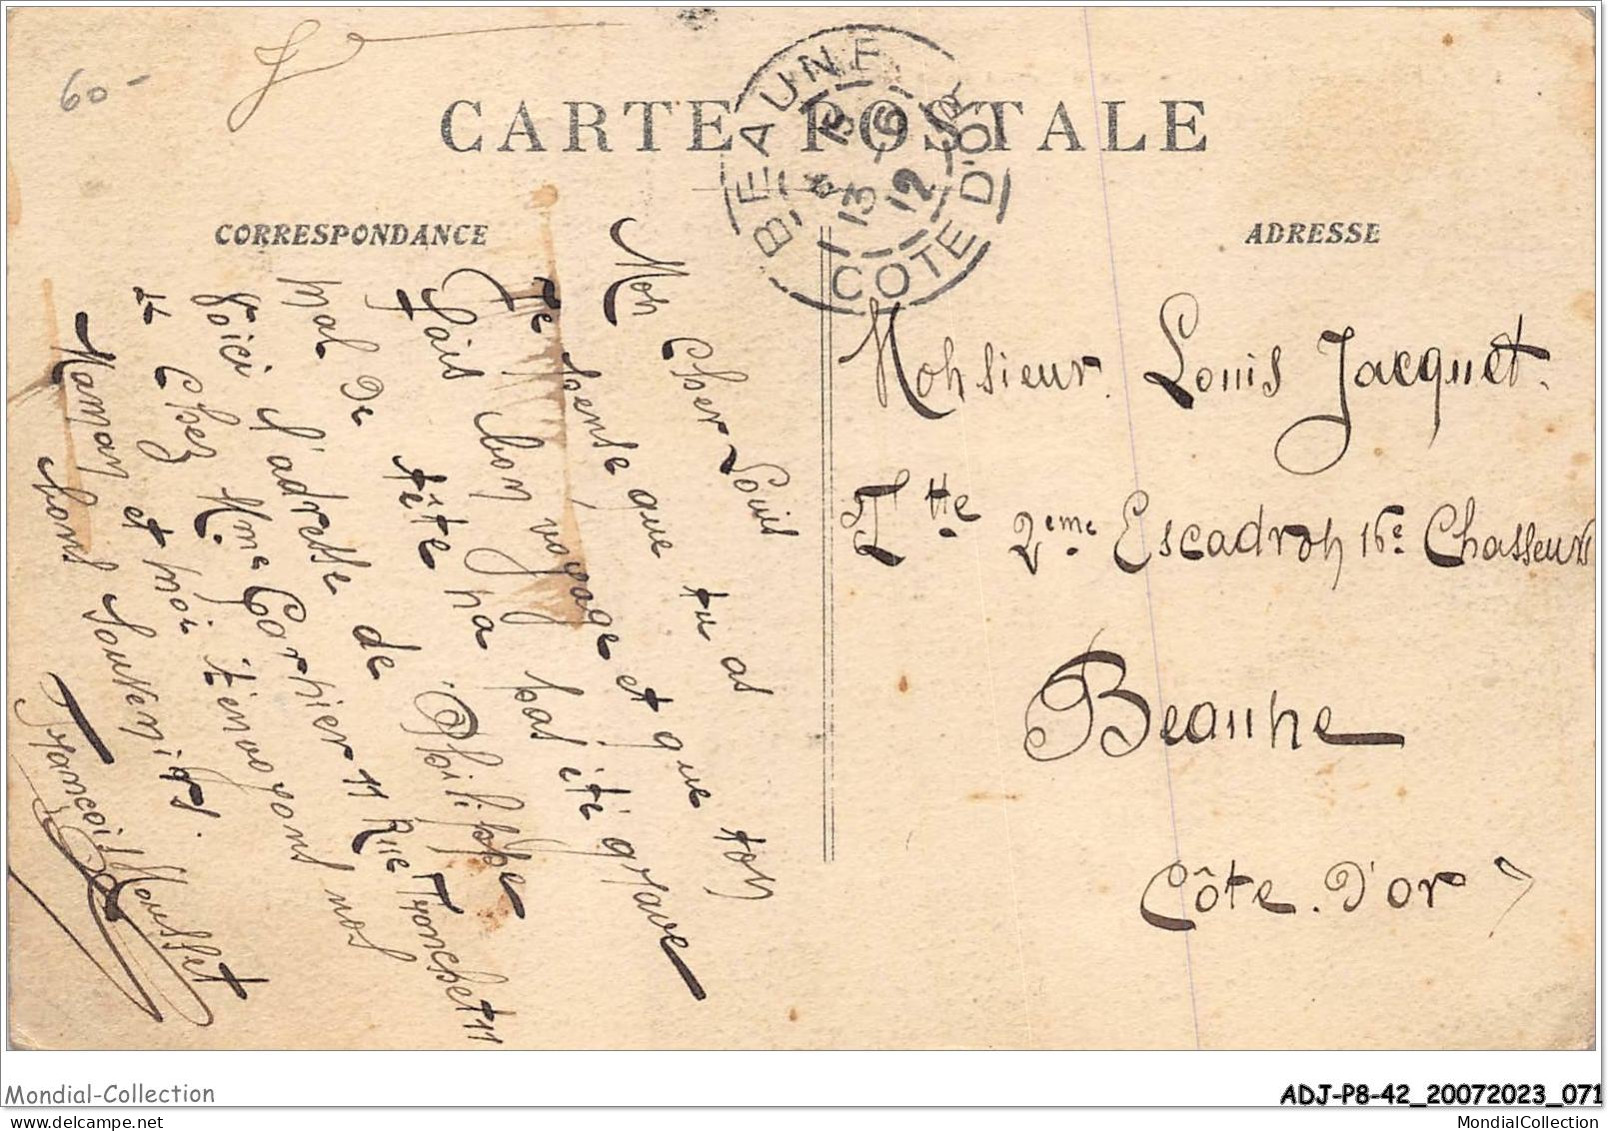 60-
CARTE POSTALE
BEAUNE
15
13 - 6
12
COTE D'OR
CORRESPONDANCE
ADRESSE
Mon Cher Louis
Je pense que tu as
fais bon voyage et que ton
mal de tête n'a pas été grave
Voici l'adresse de Philippe
Chez Mme Corhier 11 Rue Fronchet 11
Maman et moi t'envoyons nos
bons Souvenirs.
François Mousset
Monsieur Louis Jacquet.
2eme Escadron 16e Chasseurs
Beaune
Côte. D'or
Mondial-Collection
ADJ-P8-42_20072023_071
www.delcampe.net
MondialCollection